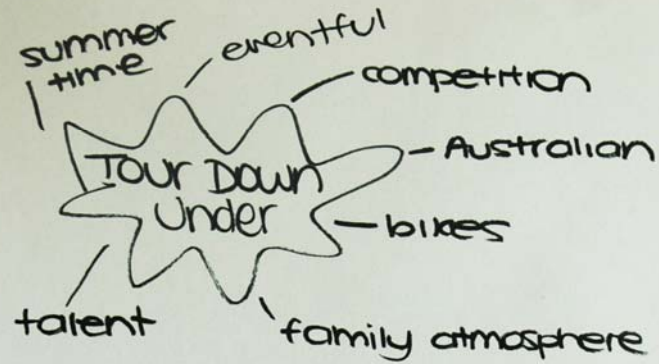 summer
time
eventful
competition
Australian
Tour Down
Under
bikes
talent
family atmosphere